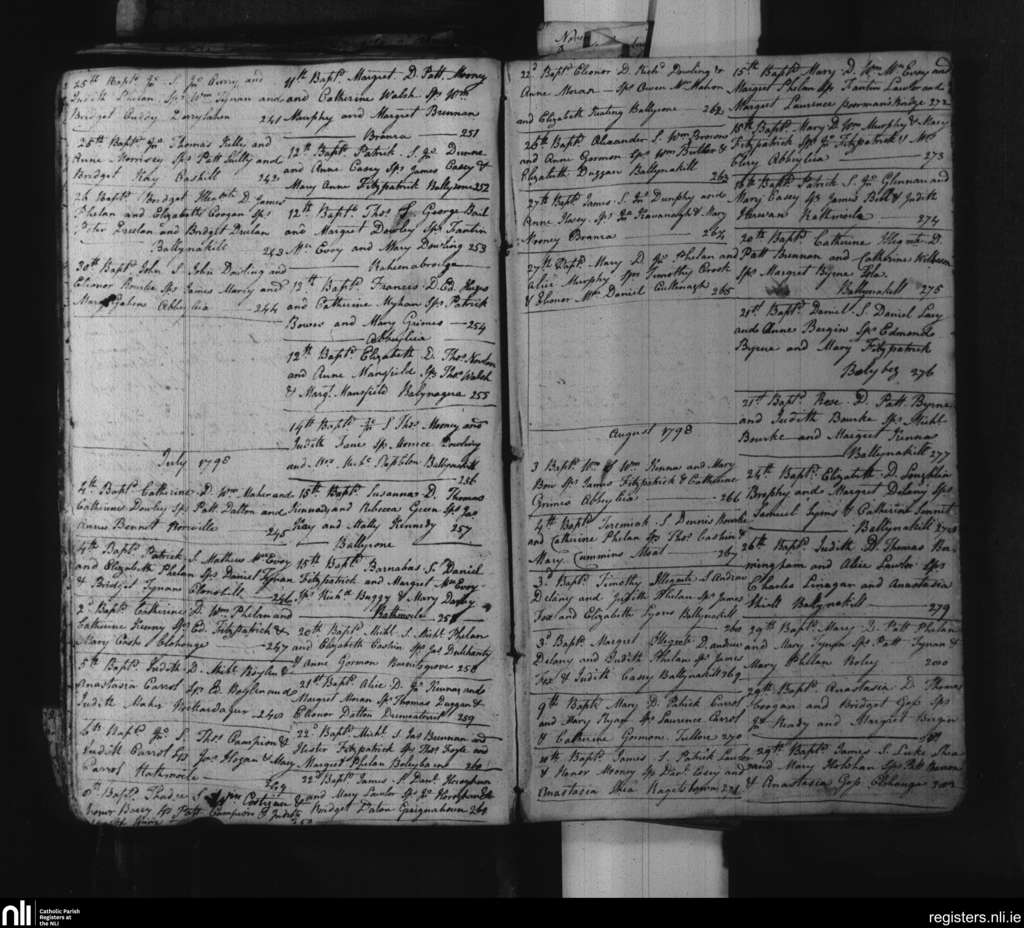 25th Bapt. Jo. S. Jo. Curry and
Judith Phelan Sps. Wm Tynan and
Bridget Cuddy 241
25th Bapt. Jo. Thomas Kelly and
Anne Morrissy Sps Patt Lully and
Bridget Kay Cashill 242
26 Bapt. Bridget Illegit. D. James
Phelan and Elizabeth Coogan Sps
Peter Preelan and Bridget Preelan
Ballynakill 243
30th Bapt. John S. John Dowling and
Elionor Rourke Sps James Marcy and
Mary Gahan Abbylia 244
July 1798
4th Bapt. Catherine D. Wm Maher and
Catherine Dowley Sps Patt Dalton and
Annes Bennot 245
4th Bapt. Patrick S. Mathew McEvoy
and Elizabeth Phelan Sps Daniel Tynan
& Bridget Tynan 246
2d Bapt. Catherine D. Wm Phelan and
Catherine Kenny Sps Ed. Fitzpatrick &
Mary Cashe Clohoge 247
5th Bapt. Judith D. Michl. Boylen &
Anastasia Carrol Sps Ed Boylen and
Judith Maher 248
6th Bapt. Jo. S. Thos Campion &
Judith Carrol Sps Jo. Hogan & Mary
Carrol Rathmoile 249
S. Wm Costigan &
Honor Barry Sps Patt Campion & Judith
11th Bapt. Margret D. Patt. Mooney
and Catherine Walsh Sps Wm
Murphy and Margret Brennan
Branra 251
12th Bapt. Patrick S. Jo. Dunne
and Anne Casey Sps James Casey &
Mary Anne Fitzpatrick Ballyrone 252
12th Bapt. Thos S. George Bail
and Margret Dowley Sps Fantin
Mc Evoy and Mary Dowling 253
Raheenabrogue
12th Bapt. Francis D. Ed. Hayes
and Catherine Myhan Sps Patrick
Bowes and Mary Grimes 254
Abbylia
12th Bapt. Elizabeth D. Thos Nowlan
and Anne Mansfield Sps Thos Walsh
& Margt. Mansfield Balynagera 255
14th Bapt. Jo. S Thos. Mooney and
Judith Lane Sps Morrice Dowling
and Mrs Stapleton Ballynakill
256
15th Bapt. Susanna D. Thomas
Kennedy and Rebecca Green Sps Jas
Kay and Molly Kennedy 257
Ballyrone
15th Bapt. Barnabas S. Daniel
Fitzpatrick and Margret McEvoy
Sps Richd. Buggy & Mary Darby
Rathmoile 258
20th Bapt. Michl. S. Michl. Phelan
and Elizabeth Cashin Sps Jas Delehanty
& Anne Gormon Burnisgrove 258
21st Bapt. Alice D. Jo. Keenan and
Margret Moran Sps Thomas Duggan &
Elionor Dalton 259
22d Bapt. Michl S. Jas Brennan and
Hester Fitzpatrick Sps Thos. Foyle and
Margret Phelan Balleyhern 260
22d Bapt. James S. Danl. Horoghran
and Mary Lawlor Sps Jo. Horoghran &
Bridget Dalon Graiguahown 261
22d Bapt. Elionor D. Richd. Dowling &
Anne Moran Sps Owen McMahon
and Elizabeth Keating Ballyrone 262
26th Bapt. Alexander S. Wm Browne
and Anne Gormon Sps Wm Butler &
Elizabeth Duggan Ballynakill
263
27th Bapt. James S. Jn. Dunphy and
Anne Hosey Sps Jo. Kavanagh & Mary
Mooney Branra 264
27th Bapt. Mary D. Jo. Phelan and
Alice Murphy Sps Timothy Crook
& Elionor Daniel Cullinagh 265
August 1798
3 Bapt. Wm of Wm Kenna and Mary
Bow Sps James Fitzpatrick & Catherine
Grimes Abbylia 266
4th Bapt. Jeremiah S Dennis Rourke
and Catherine Phelan Sps Thos. Cashin &
Mary Cummins Moat 267
3d Bapt. Timothy Illegit. S Andrew
Delany and Judith Phelan Sps James
Fox and Elizabeth Lyons Ballynakill
268
3d Bapt. Margret Illegit. D. Andrew
Delany and Judith Phelan Sps James
Fox & Judith Casey Ballynakill 269
9th Bapt. Mary D. Patrick Carrol
and Mary Ryan Sps Laurence Carrol
& Catherine Gormon Tullore 270
10th Bapt. James S. Patrick Lawlor
& Honor Mooney Sps Danl. Casey and
Anastasia Shea 271
15th Bapt. Mary D. Wm McEvoy and
Margret Phelan Sps Fantin Lawlor and
Margret Laurence poormans Bridge 272
15th Bapt. Mary D. Wm Murphy & Mary
Fitzpatrick Sps Jo. Fitzpatrick &
Elery Abbylia 273
16th Bapt. Patrick S. Jo. Glennan and
Mary Casey Sps James Bell & Judith
Kerwan Rathmoila 274
20th Bapt. Catherine Illegite D.
Patt Brennan and Catherine Kilkeen
Sps Margret Byrne
Ballynakill 275
21st Bapt. Daniel S. Daniel Lacy
and Anne Bergin Sps Edmond
Byrne and Mary Fitzpatrick
Balybeg 276
21st Bapt. Rose D. Patt Byrne
and Judith Bourke Sps Michl.
Bourke and Margret Kenna
Ballynakill 277
24th Bapt. Elizabeth D. Loughlin
Brophy and Margret Delany Sps
Samuel Lyons & Catherine Sinnit
Ballynakill 278
26th Bapt. Judith D. Thomas Bur
mingham and Alice Lawlor Sps
Charles Linagan and Anastasia
Shiell Ballynakill 279
29th Bapt. Mary D. Patt Phelan
and Mary Tynan Sps Patt Tynan &
Mary Phelan Roley 280
29th Bapt. Anastasia D. Thomas
Hoogan and Bridget Goss Sps
Jo. Kealy and Margret Bergin
281
29th Bapt. James S. Luke Shea
and Mary Holohan Sps Patt Brenan
& Anastasia Goss Clohouge 282
nli
Catholic Parish
Registers at
the NLI
registers.nli.ie